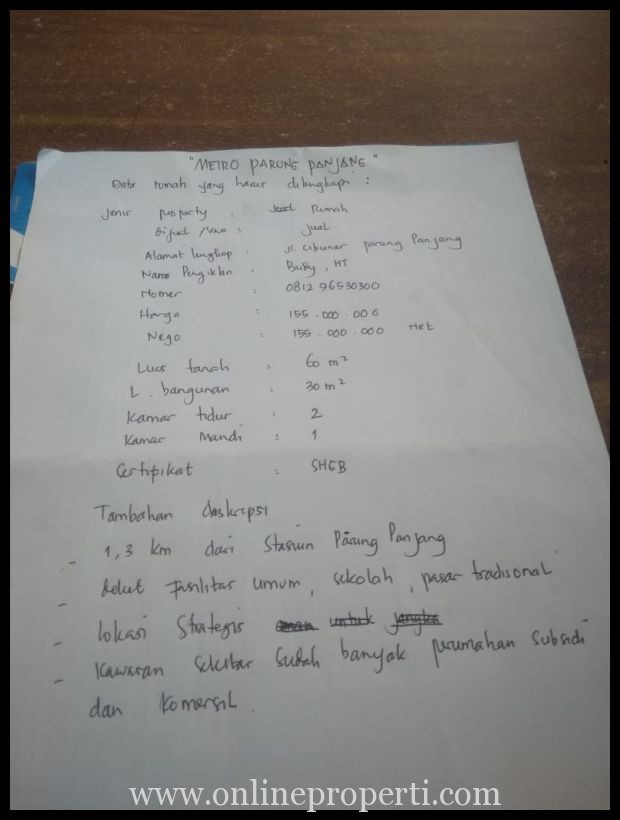 "METRO PARUNG PANJANG"
Data rumah yang harus dilengkapi :
Jenis property : Jual Rumah
Dijual /sewa : Jual
Alamat lengkap : Jl. Cibunar parung Panjang
Nama Pengiklan : Budy, HT
Nomer : 0812 96530300
Harga : 155.000.000
Nego : 155.000.000 Net
Luas tanah : 60 m²
L. bangunan : 30 m²
Kamar tidur : 2
Kamar Mandi : 1
Certifikat : SHGB
Tambahan deskripsi
- 1,3 km dari Stasiun Parung Panjang
- dekat Fasilitas umum, sekolah, pasar tradisonal
- lokasi Strategis aman untuk jangka
- Kawasan sekitar sudah banyak perumahan subsidi
dan Komersil.
www.onlineproperti.com